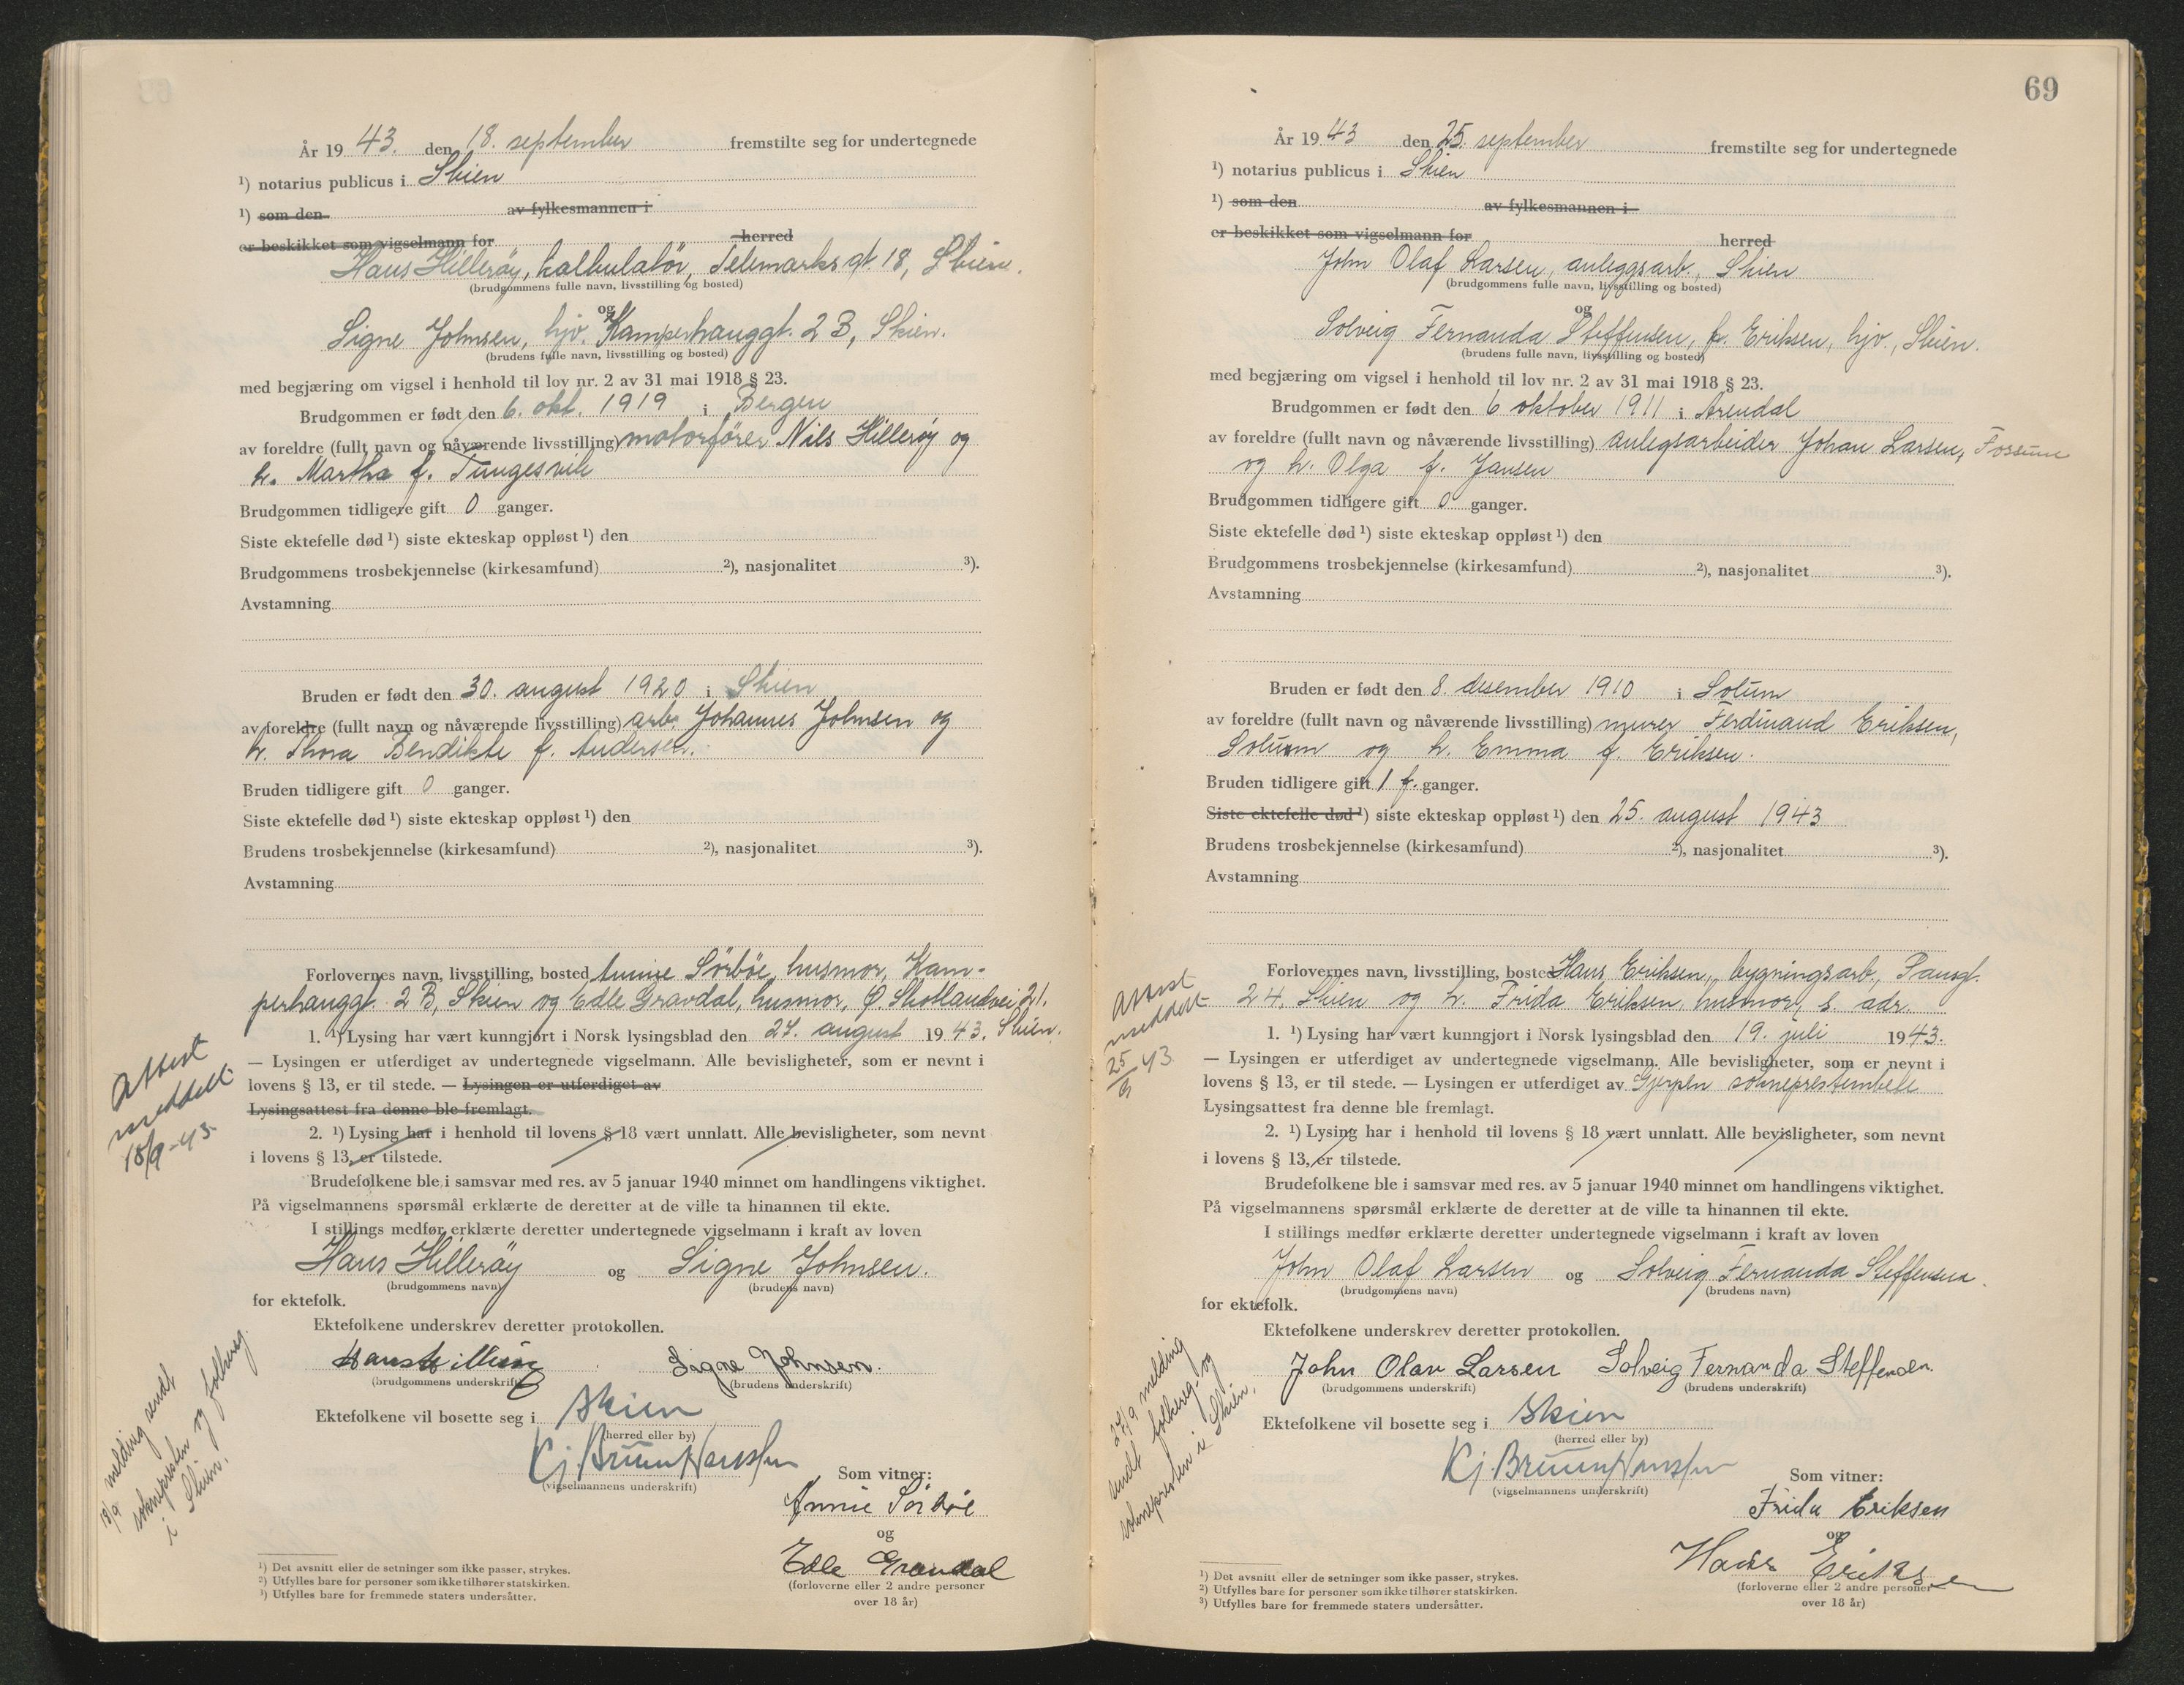 År 19 43. den 18. september fremstilte seg for undertegnede
¹) notarius publicus i Skien
¹) som den av fylkesmannen i
er beskikket som vigselmann for herred
Hans Hillerøy, kalkulatör, Telemarksgt. 18, Skien.
(brudgommens fulle navn, livsstilling og bosted)
og
Signe Johnsen, hjv. Kamperhauggt. 2 B, Skien.
(brudens fulle navn, livsstilling og bosted)
med begjæring om vigsel i henhold til lov nr. 2 av 31 mai 1918 § 23.
Brudgommen er født den 6. okt. 1919 i Bergen
av foreldre (fullt navn og nåværende livsstilling) motorförer Nils Hillerøy og
h. Martha f. Tungesvik
Brudgommen tidligere gift 0 ganger.
Siste ektefelle død ¹) siste ekteskap oppløst ¹) den
Brudgommens trosbekjennelse (kirkesamfund) ²), nasjonalitet ³).
Avstamning
Bruden er født den 30. august 1920 i Skien
av foreldre (fullt navn og nåværende livsstilling) arb. Johannes Johnsen og
h. Thora Bendikte f. Andersen.
Bruden tidligere gift 0 ganger.
Siste ektefelle død ¹) siste ekteskap oppløst ¹) den
Brudens trosbekjennelse (kirkesamfund) ²), nasjonalitet ³).
Avstamning
Forlovernes navn, livsstilling, bosted Annie Sörböe, husmor, Kam-
perhauggt. 2 B, Skien og Edle Gravdal, husmor, Ø. Skotlandvei 21.
1. ¹) Lysing har vært kunngjort i Norsk lysingsblad den 24. august 19 43. Skien.
— Lysingen er utferdiget av undertegnede vigselmann. Alle bevisligheter, som er nevnt i
lovens § 13, er til stede. — Lysingen er utferdiget av
Lysingsattest fra denne ble fremlagt.
2. ¹) Lysing har i henhold til lovens § 18 vært unnlatt. Alle bevisligheter, som nevnt
i lovens § 13, er tilstede.
Brudefolkene ble i samsvar med res. av 5 januar 1940 minnet om handlingens viktighet.
På vigselmannens spørsmål erklærte de deretter at de ville ta hinannen til ekte.
I stillings medfør erklærte deretter undertegnede vigselmann i kraft av loven
Hans Hillerøy og Signe Johnsen.
(brudgommens navn) (brudens navn)
for ektefolk.
Ektefolkene underskrev deretter protokollen.
Hans Hillerøy Signe Johnsen.
(brudgommens underskrift) (brudens underskrift)
Ektefolkene vil bosette seg i Skien
(herred eller by)
Kj. Bruun Hanssen
(vigselmannens underskrift)
Som vitner:
Annie Sörböe
og
Edle Gravdal
(forloverne eller 2 andre personer
over 18 år)
¹) Det avsnitt eller de setninger som ikke passer, strykes.
²) Utfylles bare for personer som ikke tilhører statskirken.
³) Utfylles bare for fremmede staters undersåtter.
Attest
meddelt
18/9-43
18/9 melding sendt
soknepresten og folkereg.
i Skien.
69
År 19 43 den 25. september fremstilte seg for undertegnede
¹) notarius publicus i Skien
¹) som den av fylkesmannen i
er beskikket som vigselmann for herred
John Olaf Larsen, anleggsarb., Skien
(brudgommens fulle navn, livsstilling og bosted)
og
Solveig Fernanda Steffensen, f. Eriksen, hjv., Skien.
(brudens fulle navn, livsstilling og bosted)
med begjæring om vigsel i henhold til lov nr. 2 av 31 mai 1918 § 23.
Brudgommen er født den 6 oktober 1911 i Arendal
av foreldre (fullt navn og nåværende livsstilling) anlegsarbeider Johan Larsen, Fossum
og h. Olga f. Jansen
Brudgommen tidligere gift 0 ganger.
Siste ektefelle død ¹) siste ekteskap oppløst ¹) den
Brudgommens trosbekjennelse (kirkesamfund) ²), nasjonalitet ³).
Avstamning
Bruden er født den 8. desember 1910 i Solum
av foreldre (fullt navn og nåværende livsstilling) murer Ferdinand Eriksen,
Solum og h. Emma f. Eriksen.
Bruden tidligere gift 1 g. ganger.
Siste ektefelle død ¹) siste ekteskap oppløst ¹) den 25. august 1943
Brudens trosbekjennelse (kirkesamfund) ²), nasjonalitet ³).
Avstamning
Forlovernes navn, livsstilling, bosted Hans Eriksen, bygningsarb.,
24, Skien og h. Frida Eriksen, husmor, s. adr.
1. ¹) Lysing har vært kunngjort i Norsk lysingsblad den 19. juli 19 43.
— Lysingen er utferdiget av undertegnede vigselmann. Alle bevisligheter, som er nevnt i
lovens § 13, er til stede. — Lysingen er utferdiget av Gjerpen sokneprestembete
Lysingsattest fra denne ble fremlagt.
2. ¹) Lysing har i henhold til lovens § 18 vært unnlatt. Alle bevisligheter, som nevnt
i lovens § 13, er tilstede.
Brudefolkene ble i samsvar med res. av 5 januar 1940 minnet om handlingens viktighet.
På vigselmannens spørsmål erklærte de deretter at de ville ta hinannen til ekte.
I stillings medfør erklærte deretter undertegnede vigselmann i kraft av loven
John Olaf Larsen og Solveig Fernanda Steffensen.
(brudgommens navn) (brudens navn)
for ektefolk.
Ektefolkene underskrev deretter protokollen.
John Olav Larsen Solveig Fernanda Steffensen.
(brudgommens underskrift) (brudens underskrift)
Ektefolkene vil bosette seg i Skien
(herred eller by)
Kj. Bruun Hanssen
(vigselmannens underskrift)
Som vitner:
Frida Eriksen
og
Hans Eriksen
(forloverne eller 2 andre personer
over 18 år)
¹) Det avsnitt eller de setninger som ikke passer, strykes.
²) Utfylles bare for personer som ikke tilhører statskirken.
³) Utfylles bare for fremmede staters undersåtter.
Attest
meddelt
25/9 43.
27/9 melding
sendt folkereg. og
soknepresten i Skien.